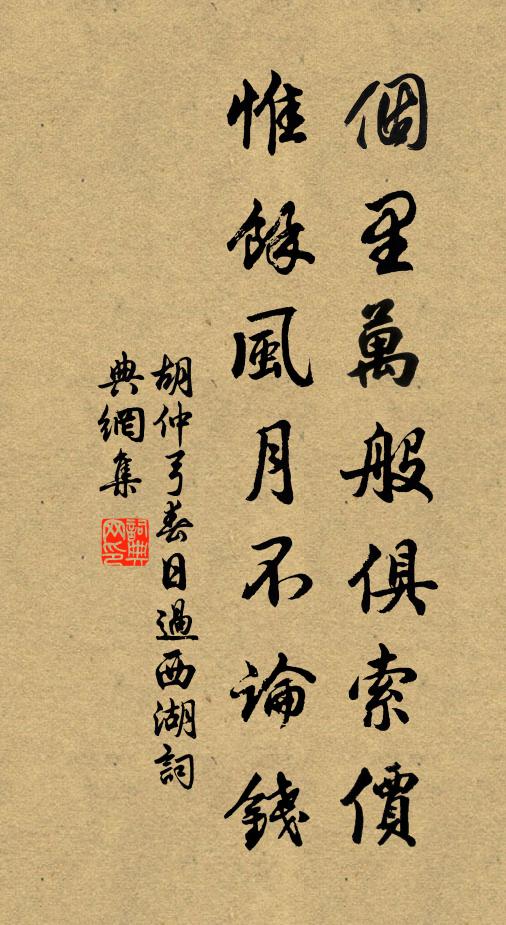 個里萬般俱索價
惟餘風月不論錢
胡仲弓春日過西湖詞
典網集
詞典網印